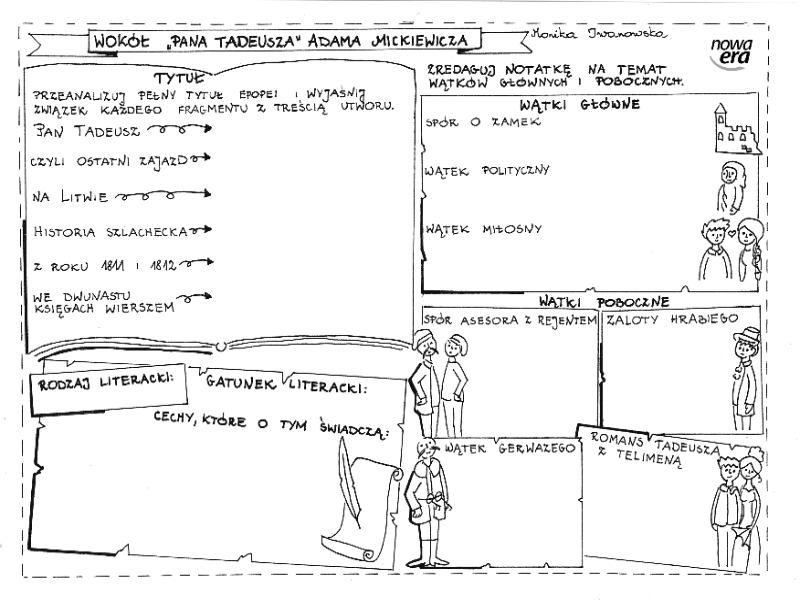 WOKÓŁ „PANA TADEUSZA" ADAMA MICKIEWICZA
Monika Iwanowska
nowa
era
TYTUŁ
PRZEANALIZUJ PEŁNY TYTUŁ EPOPEI I WYJAŚNIJ
ZWIĄZEK KAŻDEGO FRAGMENTU Z TREŚCIĄ UTWORU.
PAN TADEUSZ
CZYLI OSTATNI ZAJAZD
NA LITWIE
HISTORIA SZLACHECKA
Z ROKU 1811 I 1812
WE DWUNASTU
KSIĘGACH WIERSZEM
ZREDAGUJ NOTATKĘ NA TEMAT
WĄTKÓW GŁÓWNYCH I POBOCZNYCH.
WĄTKI GŁÓWNE
SPÓR O ZAMEK
WĄTEK POLITYCZNY
WĄTEK MIŁOSNY
WĄTKI POBOCZNE
SPÓR ASESORA Z REJENTEM
ZALOTY HRABIEGO
RODZAJ LITERACKI:
GATUNEK LITERACKI:
CECHY, KTÓRE O TYM ŚWIADCZĄ:
WĄTEK GERWAZEGO
ROMANS TADEUSZA
Z TELIMENĄ